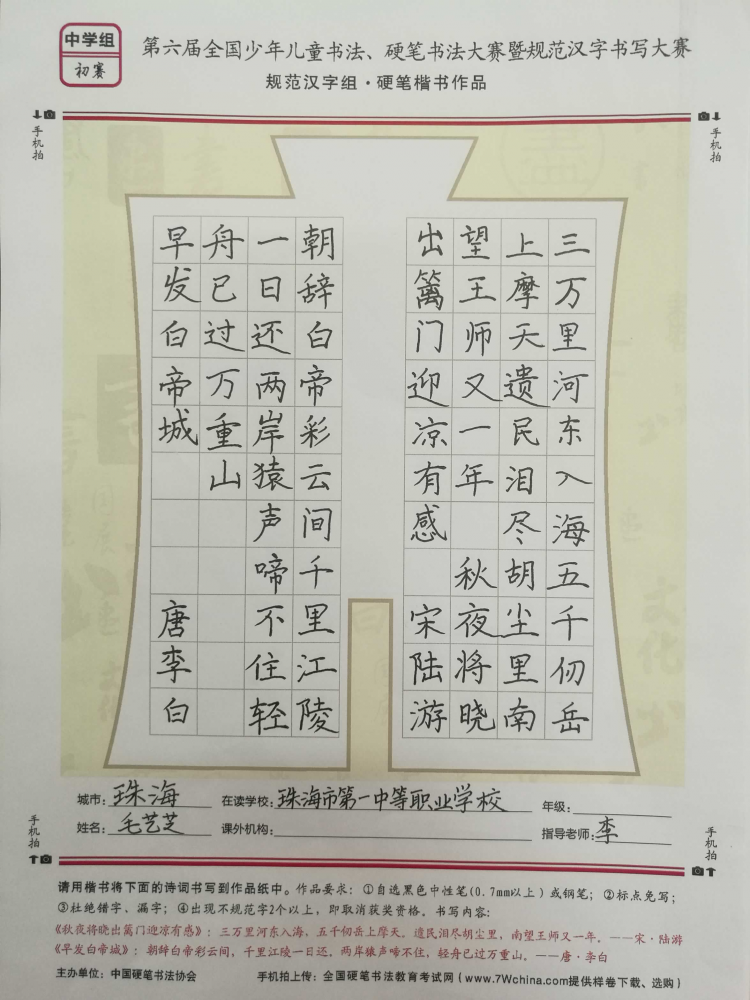 中学组
初赛
第六届全国少年儿童书法、硬笔书法大赛暨规范汉字书写大赛
规范汉字组·硬笔楷书作品
手机拍
手机拍
三万里河东入海五千仞岳
上摩天遗民泪尽胡尘里南
望王师又一年 秋夜将晓
出篱门迎凉有感 宋陆游
朝辞白帝彩云间千里江陵
一日还两岸猿声啼不住轻
舟已过万重山
早发白帝城 唐李白
城市：珠海 在读学校：珠海市第一中等职业学校 年级：
姓名：毛艺芝 课外机构： 指导老师：李
手机拍
手机拍
请用楷书将下面的诗词书写到作品纸中。作品要求：①自选黑色中性笔(0.7mm以上)或钢笔；②标点免写；
③杜绝错字、漏字；④出现不规范字2个以上，即取消获奖资格。书写内容：
《秋夜将晓出篱门迎凉有感》：三万里河东入海，五千仞岳上摩天。遗民泪尽胡尘里，南望王师又一年。——宋·陆游
《早发白帝城》：朝辞白帝彩云间，千里江陵一日还。两岸猿声啼不住，轻舟已过万重山。——唐·李白
主办单位：中国硬笔书法协会 手机拍上传：全国硬笔书法教育考试网（www.7Wchina.com提供样卷下载、选购）